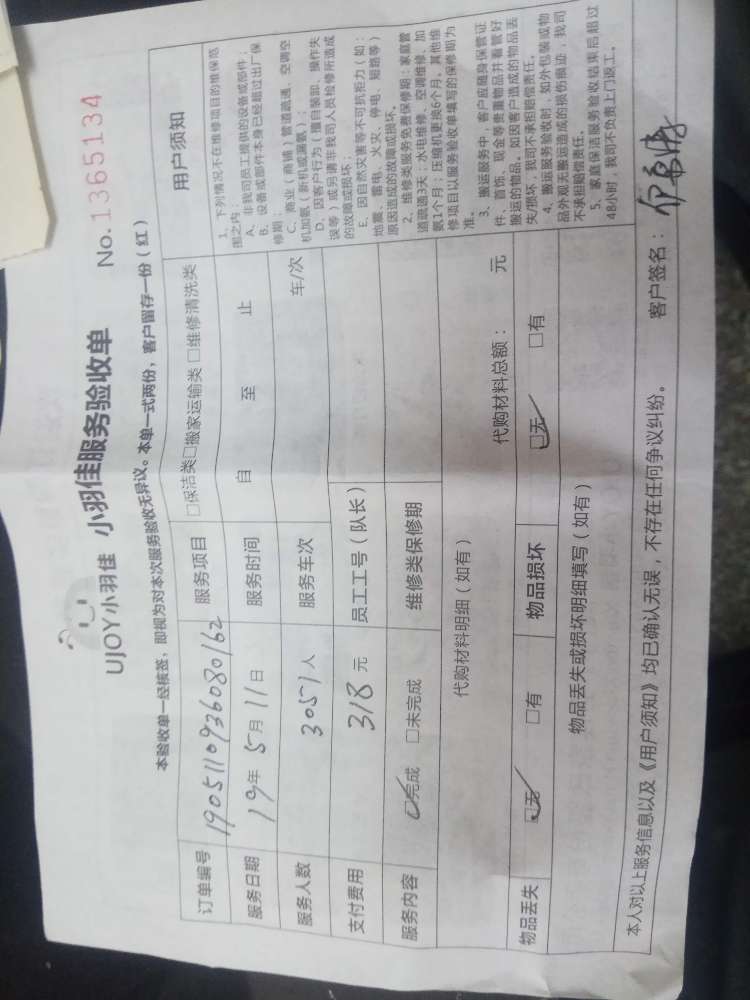 UJOY小羽佳 小羽佳服务验收单 No.1365134
本验收单一经核签，即视为对本次服务验收无异议。本单一式两份，客户留存一份（红）
订单编号 1905110936080162 服务项目 □保洁类□搬家运输类□维修清洗类
服务日期 19年5月11日 服务时间 自 至 止
服务人数 30571人 服务车次 车/次
支付费用 318元 员工工号（队长）
服务内容 ☑完成 □未完成 维修类保修期
代购材料明细（如有） 代购材料总额： 元
物品丢失 ☑无 □有 物品损坏 ☑无 □有
物品丢失或损坏明细填写（如有）
用户须知
1、下列情况不在维修项目的维保范
围之内：
A、非我司员工提供的设备或部件；
B、设备或部件本身已经超过出厂保
修期；
C、商业（商铺）管道疏通、空调空
机加氨（新机或漏氨）；
D、因客户行为（擅自装卸、操作失
误等）或另请非我司人员检修所造成
的故障或损坏；
E、因自然灾害等不可抗拒力（如：
地震、雷电、火灾、停电、短路等）
原因造成的故障或损坏。
2、维修类服务免费保修期：家庭管
道疏通3天；水电维修、空调维修、加
氨1个月；压缩机更换6个月。其他维
修项目以服务验收单填写的保修期为
准。
3、搬运服务中，客户应随身保管证
件、首饰、现金等贵重物品并看管好
搬运的物品。如因客户造成的物品丢
失/损坏，我司不承担赔偿责任。
4、搬运服务验收时，如外包装或物
品外观无搬运造成的损伤痕迹，我司
不承担赔偿责任。
5、家庭保洁服务验收结束后超过
48小时，我司不负责上门返工。
本人对以上服务信息以及《用户须知》均已确认无误，不存在任何争议纠纷。 客户签名：